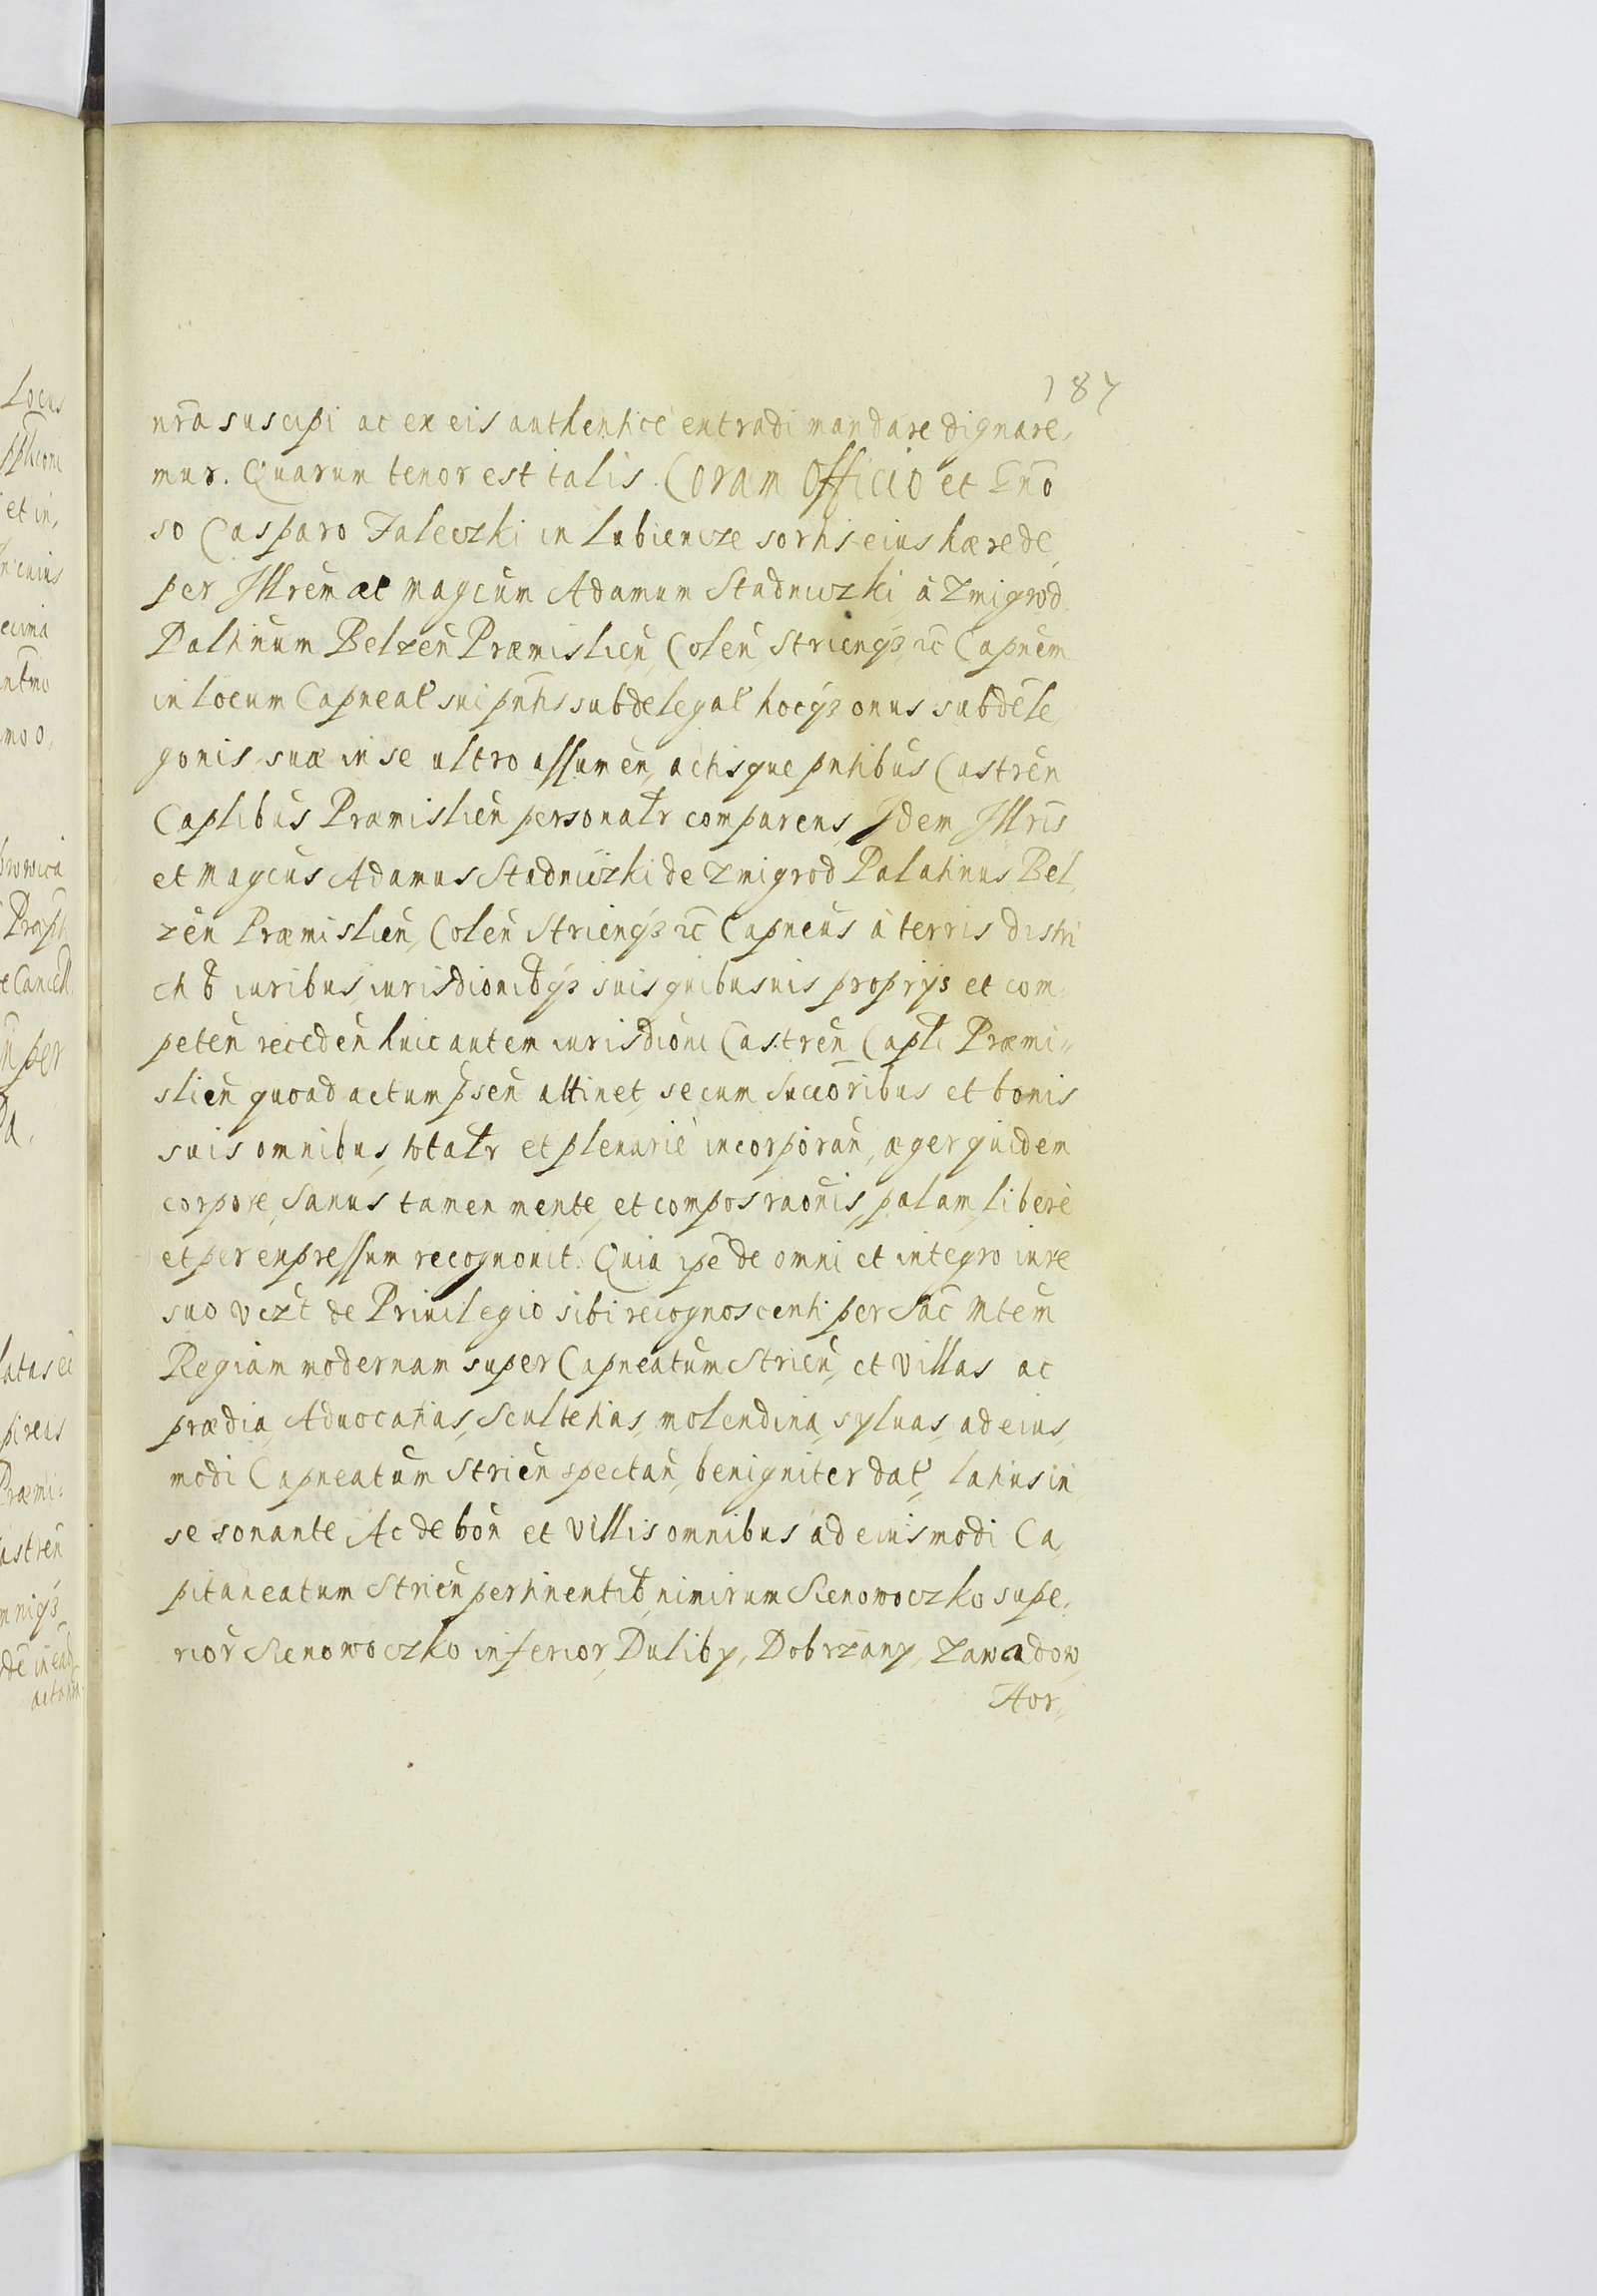 187
nr̃a suscipi ac ex eis authentice extradi mandare dignare,
mur. Quarum tenor est talis. Coram Officio et Gñõ
so Casparo Faleczki in Lubiencze sortis eius hærede,
per Illrem ac Magcum Adamum Stadniczki à Zmigrod
Paltinum Belzen̄ Præmislien̄, Colen̄ Strieng3 ꝛc Capnem
in locum Capneat' sui pn̄tis subdelegat' hocq3 onus subdele,
gonis suæ in se ultro assumen̄, actisque pntibus Castren̄
Caplibus Præmislien̄ personatr comparens, Idem Illris
et Magcus Adamus Stadniczki de Zmigrod Palatinus Bel,
zen̄ Præmislien̄, Colen̄ Strieng3 ꝛc Capneus à terris distri
ctib iuribus, iurisdionibq3 suis quibusuis proprys et com
peten̄ receden̄ huic autem iurisdioni Castren̄ Capli Præmi=
slien̄ quoad actum p̄sen̄ attinet, se cum Succoribus et bonis
suis omnibus, totalr et plenariè incorporan̄, æger quidem
corpore, Sanus tamen mente, et compos raonis, palam, liberè
et per expressum recognouit. Quia ip̄e de omni et integro iure
suo vczt de Priuilegio sibi recognoscenti per Sac̄ Mtem
Regiam modernam super Capneatum Strien̄, et Villas ac
prædia, Aduocatias, Scultetias, molendina, syluas, ad eius,
modi Capneatum Strien̄ spectan̄, benigniter dat', latius in
se sonante Ac de bon̄ et Villis omnibus ad eiusmodi Ca,
pitaneatum Strien̄ pertinentib, nimirum Sienowoczko supe,
rior Sienowoczko inferior, Duliby, Dobrzany, Zawadow,
Hor,
Locus
et in,
cuius
ecima
per
Præmi=